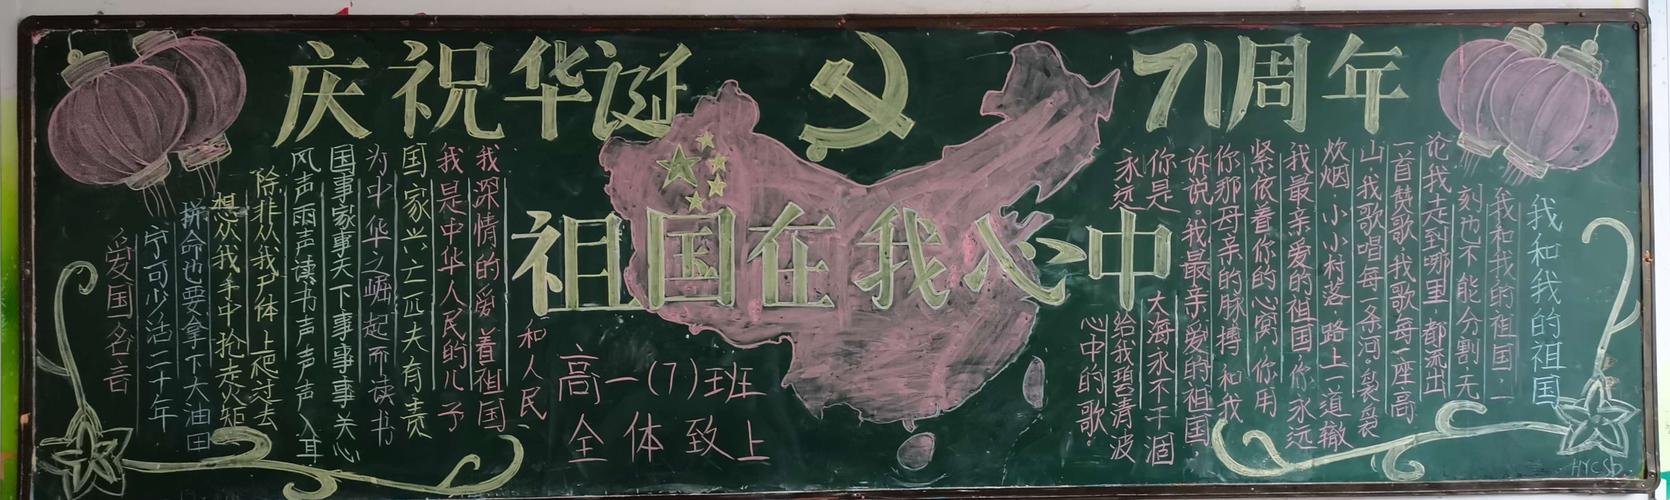 庆祝华诞 71周年
祖国在我心中
高一(7)班
全体致上
爱国名言
宁可少活二十年
拼命也要拿下大油田
想从我手中抢走矩
除非从我尸体上爬过去
风声雨声读书声声声入耳
国事家事天下事事事关心
为中华之崛起而读书
国家兴亡匹夫有责
我是中华人民的儿子
我深情的爱着祖国
和人民
我和我的祖国
我和我的祖国,一
刻也不能分割,无
论我走到哪里,都流出
一首赞歌,我歌每一座高
山,我歌唱每一条河,袅袅
炊烟,小小村落,路上一道辙
我最亲爱的祖国,你永远
紧依着你的心窝,你用
你那母亲的脉搏,和我
诉说。我最亲爱的祖国,
你是大海永不干涸
永远给我碧清波
心中的歌